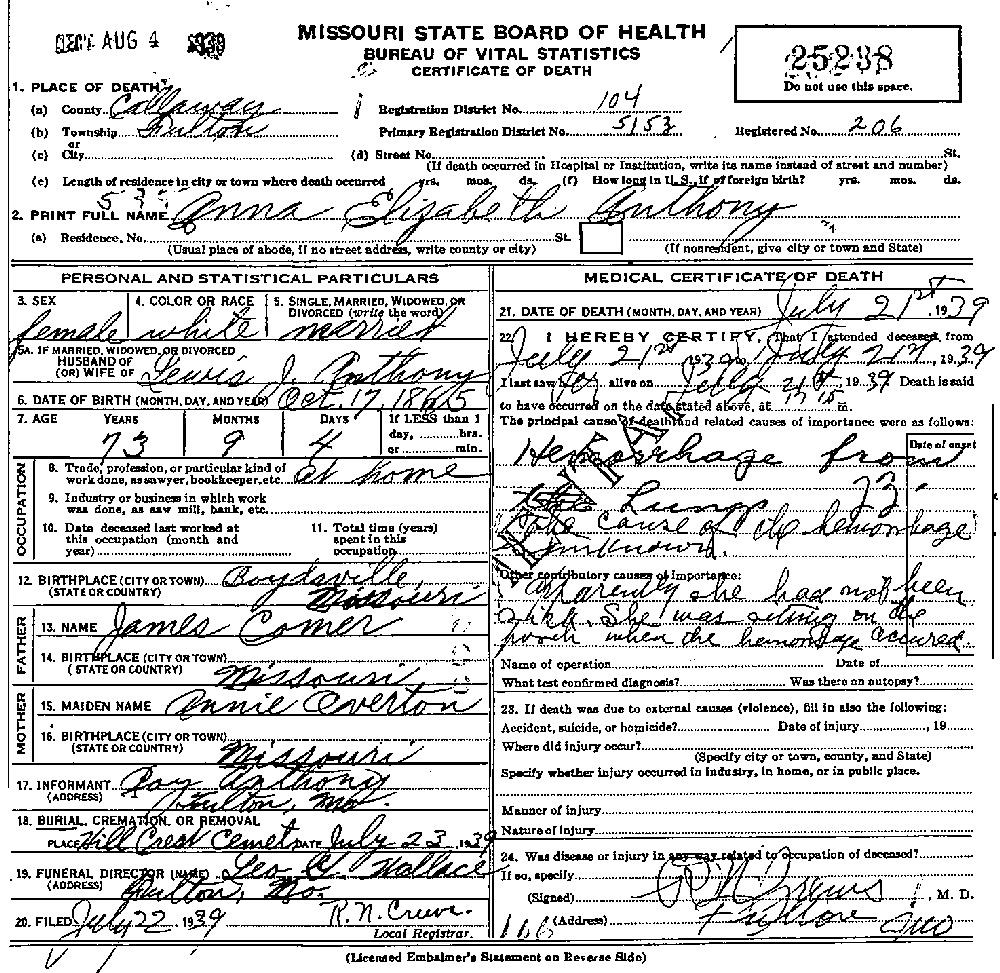 REC'D AUG 4 1939
MISSOURI STATE BOARD OF HEALTH
BUREAU OF VITAL STATISTICS
CERTIFICATE OF DEATH
25238
Do not use this space.
1. PLACE OF DEATH
(a) County Callaway
Registration District No. 104
(b) Township Fulton
Primary Registration District No. 5153
Registered No. 206
or
(c) City
(d) Street No. St.
(If death occurred in Hospital or Institution, write its name instead of street and number)
(e) Length of residence in city or town where death occurred yrs. mos. ds. (f) How long in U. S., if of foreign birth? yrs. mos. ds.
2. PRINT FULL NAME Anna Elizabeth Anthony
(a) Residence, No. St.
(Usual place of abode, if no street address, write county or city) (If nonresident, give city or town and State)
PERSONAL AND STATISTICAL PARTICULARS
3. SEX 4. COLOR OR RACE 5. SINGLE, MARRIED, WIDOWED, OR
DIVORCED (write the word)
female white married
5A. IF MARRIED, WIDOWED, OR DIVORCED
HUSBAND OF
(OR) WIFE OF Lewis J. Anthony
6. DATE OF BIRTH (MONTH, DAY, AND YEAR) Oct. 17, 1865
7. AGE YEARS MONTHS DAYS If LESS than 1
day, hrs.
73 9 4 or min.
OCCUPATION
8. Trade, profession, or particular kind of
work done, as sawyer, bookkeeper, etc. at home
9. Industry or business in which work
was done, as saw mill, bank, etc.
10. Date deceased last worked at
this occupation (month and
year)
11. Total time (years)
spent in this
occupation
12. BIRTHPLACE (CITY OR TOWN) Boydsville,
(STATE OR COUNTRY) Missouri
FATHER
13. NAME James Comer
14. BIRTHPLACE (CITY OR TOWN)
(STATE OR COUNTRY) Missouri
MOTHER
15. MAIDEN NAME Annie Overton
16. BIRTHPLACE (CITY OR TOWN)
(STATE OR COUNTRY) Missouri
17. INFORMANT Roy Anthony
(ADDRESS) Fulton, Mo.
18. BURIAL, CREMATION, OR REMOVAL
PLACE Hill Crest Cemet DATE July 23, 1939
19. FUNERAL DIRECTOR (NAME) Leo H Wallace
(ADDRESS) Fulton, Mo.
20. FILED July 22 1939 R. N. Crews.
Local Registrar.
MEDICAL CERTIFICATE OF DEATH
21. DATE OF DEATH (MONTH, DAY, AND YEAR) July 21st, 1939
22. I HEREBY CERTIFY, That I attended deceased, from
July 21st 1939 July 21 1939
I last saw alive on July 21st, 1939 Death is said
to have occurred on the date stated above, at m.
The principal cause of death and related causes of importance were as follows:
Date of onset
Hemorrhage from
the Lungs
the cause of the hemorrhage
unknown.
Other contributory causes of importance:
apparently she had not been
sick. She was sitting on the
porch when the hemorrhage occured.
Name of operation Date of
What test confirmed diagnosis? Was there an autopsy?
23. If death was due to external causes (violence), fill in also the following:
Accident, suicide, or homicide? Date of injury , 19
Where did injury occur?
(Specify city or town, county, and State)
Specify whether injury occurred in industry, in home, or in public place.
Manner of injury
Nature of injury
24. Was disease or injury in any way related to occupation of deceased?
If so, specify
(Signed) R N Crews, M. D.
106 (Address) Fulton Mo
(Licensed Embalmer's Statement on Reverse Side)